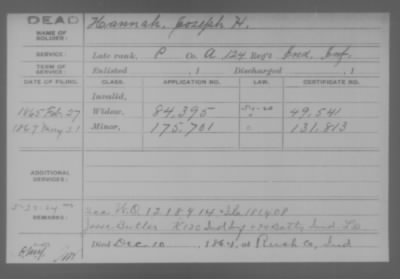 DEAD
NAME OF SOLDIER: Hannah, Joseph H.
SERVICE: Late rank, P Co. A 124 Reg't Ind. Inf.
TERM OF SERVICE: Enlisted , 1 Discharged , 1
DATE OF FILING. CLASS. APPLICATION NO. LAW. CERTIFICATE NO.
Invalid,
1865 Feb. 27 Widow, 84,395 49,541
1867 May 21 Minor, 175,701 " 131,813
ADDITIONAL SERVICES:
REMARKS:
Jesse Butler
Died Dec. 10, 1864, at Rush Co, Ind